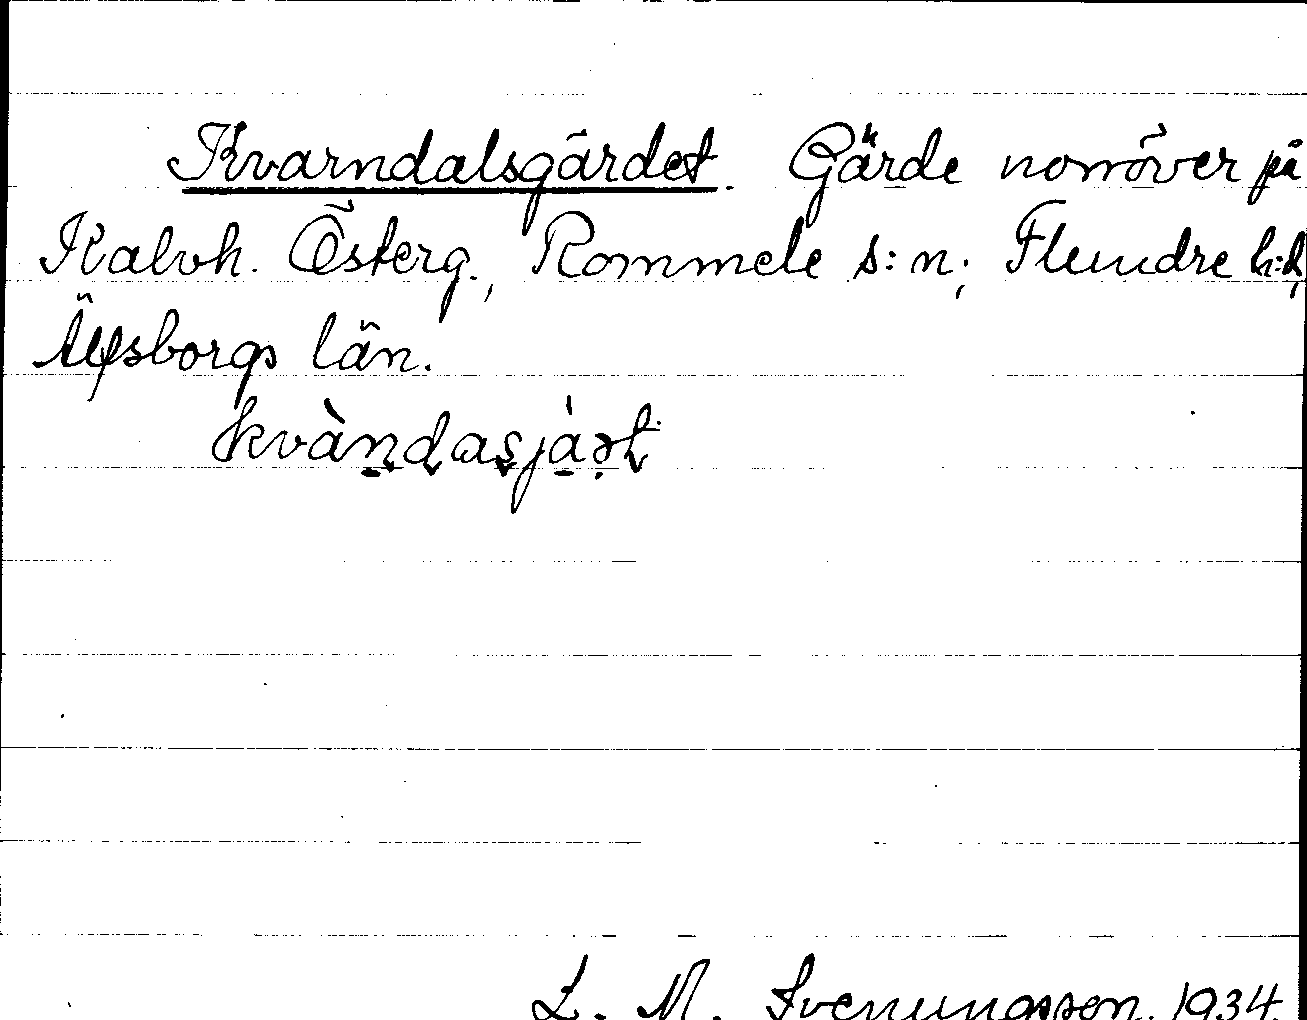 Kvarndalsgärdet. Gärde norröver på
Kalvh. Österg., Rommele s:n; Flundre h:d,
Älfsborgs län.
L. M. Svenungsson. 1934.